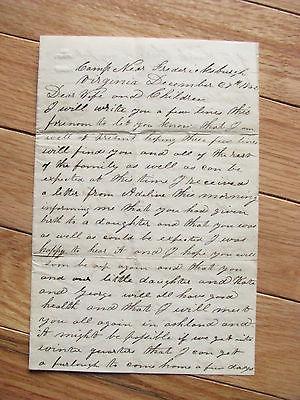 Camp Near Fredericksburgh
Virginia December
Dear Wife and Children
I will write you a few lines this
forenoon to let you know that I am
well at Present hoping these few lines
will find you and all of the rest
of the family as well as can be
expected at this time I received
a letter from this morning
informing me that you had given
birth to a daughter and that you was
as well as could be expected I was
happy to hear it and I hope you will
soon be up again and that you
and our little daughter and
and George will all have good
health and that I will meet
you all again in ashland and
it might be posible if we get into
winter quarters that I can get
a furlough to come home a few days